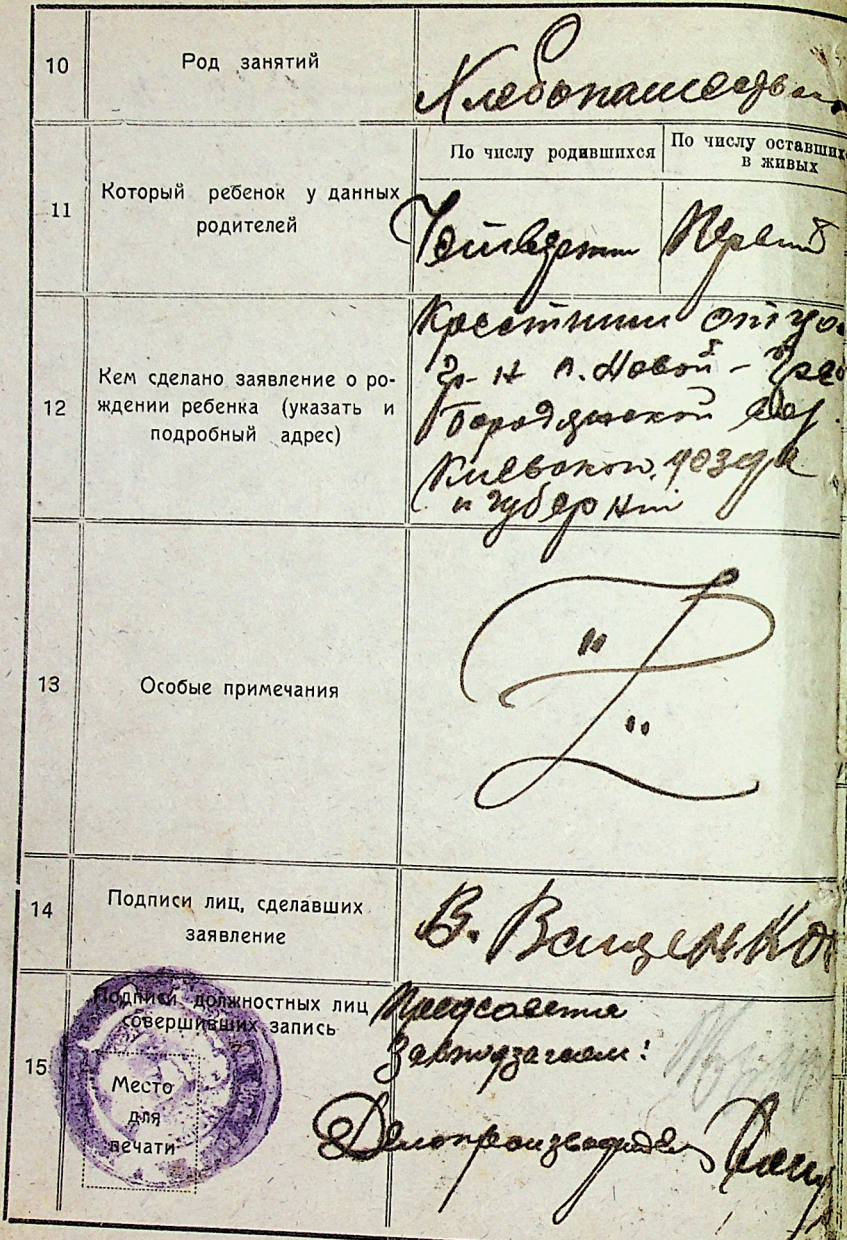 10 Род занятий Хлебопашество
11 Который ребенок у данных родителей
По числу родившихся
По числу оставших
в живых
Четвертый Первый
12 Кем сделано заявление о ро-
ждении ребенка (указать и
подробный адрес)
Крестным отцо
гр-н с. Новой-Гре
Бородянской вол.
Киевской уезда
и губернии
13 Особые примечания
14 Подписи лиц, сделавших
заявление
В. Ващенко
15 Подписи должностных лиц
совершивших запись
Место
для
печати
Предсовета
Завподзагсом:
Делопроизводитель